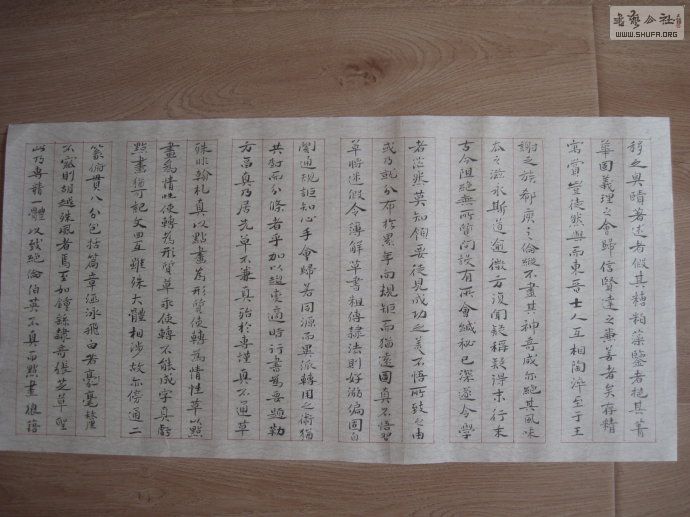 移之奥賾著述者假其糟粕藻鑒者挹其菁
華固義理之會歸信賢達之兼善者矣存精
寓賞豈徒然與而東晋士人互相陶淬至于王
謝之族郗庾之倫縱不盡其神奇咸亦挹其風味
去之滋永斯道逾微方復聞疑稱疑得末行末
古今阻絕無所質問設有所會緘秘已深遂令學
者茫然莫知領要徒見成功之美不悟所致之由
或乃就分布於累年向規矩而猶遠圖真不悟習
草將迷假令薄解草書粗傳隸法則好溺偏固自
閡通規詎知心手會歸若同源而異派轉用之術猶
共樹而分條者乎加以趨變適時行書為要題勒
方畐真乃居先草不兼真殆於專謹真不通草
殊非翰札真以點畫為形質使轉為情性草以點
畫為情性使轉為形質草乖使轉不能成字真虧
點畫猶可記文回互雖殊大體相涉故亦傍通二
篆俯貫八分包括篇章涵泳飛白若毫釐
不察則胡越殊風者焉至如鍾繇隸奇張芝草聖
此乃專精一體以致絕倫伯英不真而點畫狼藉
書藝公社
WWW.SHUFA.ORG